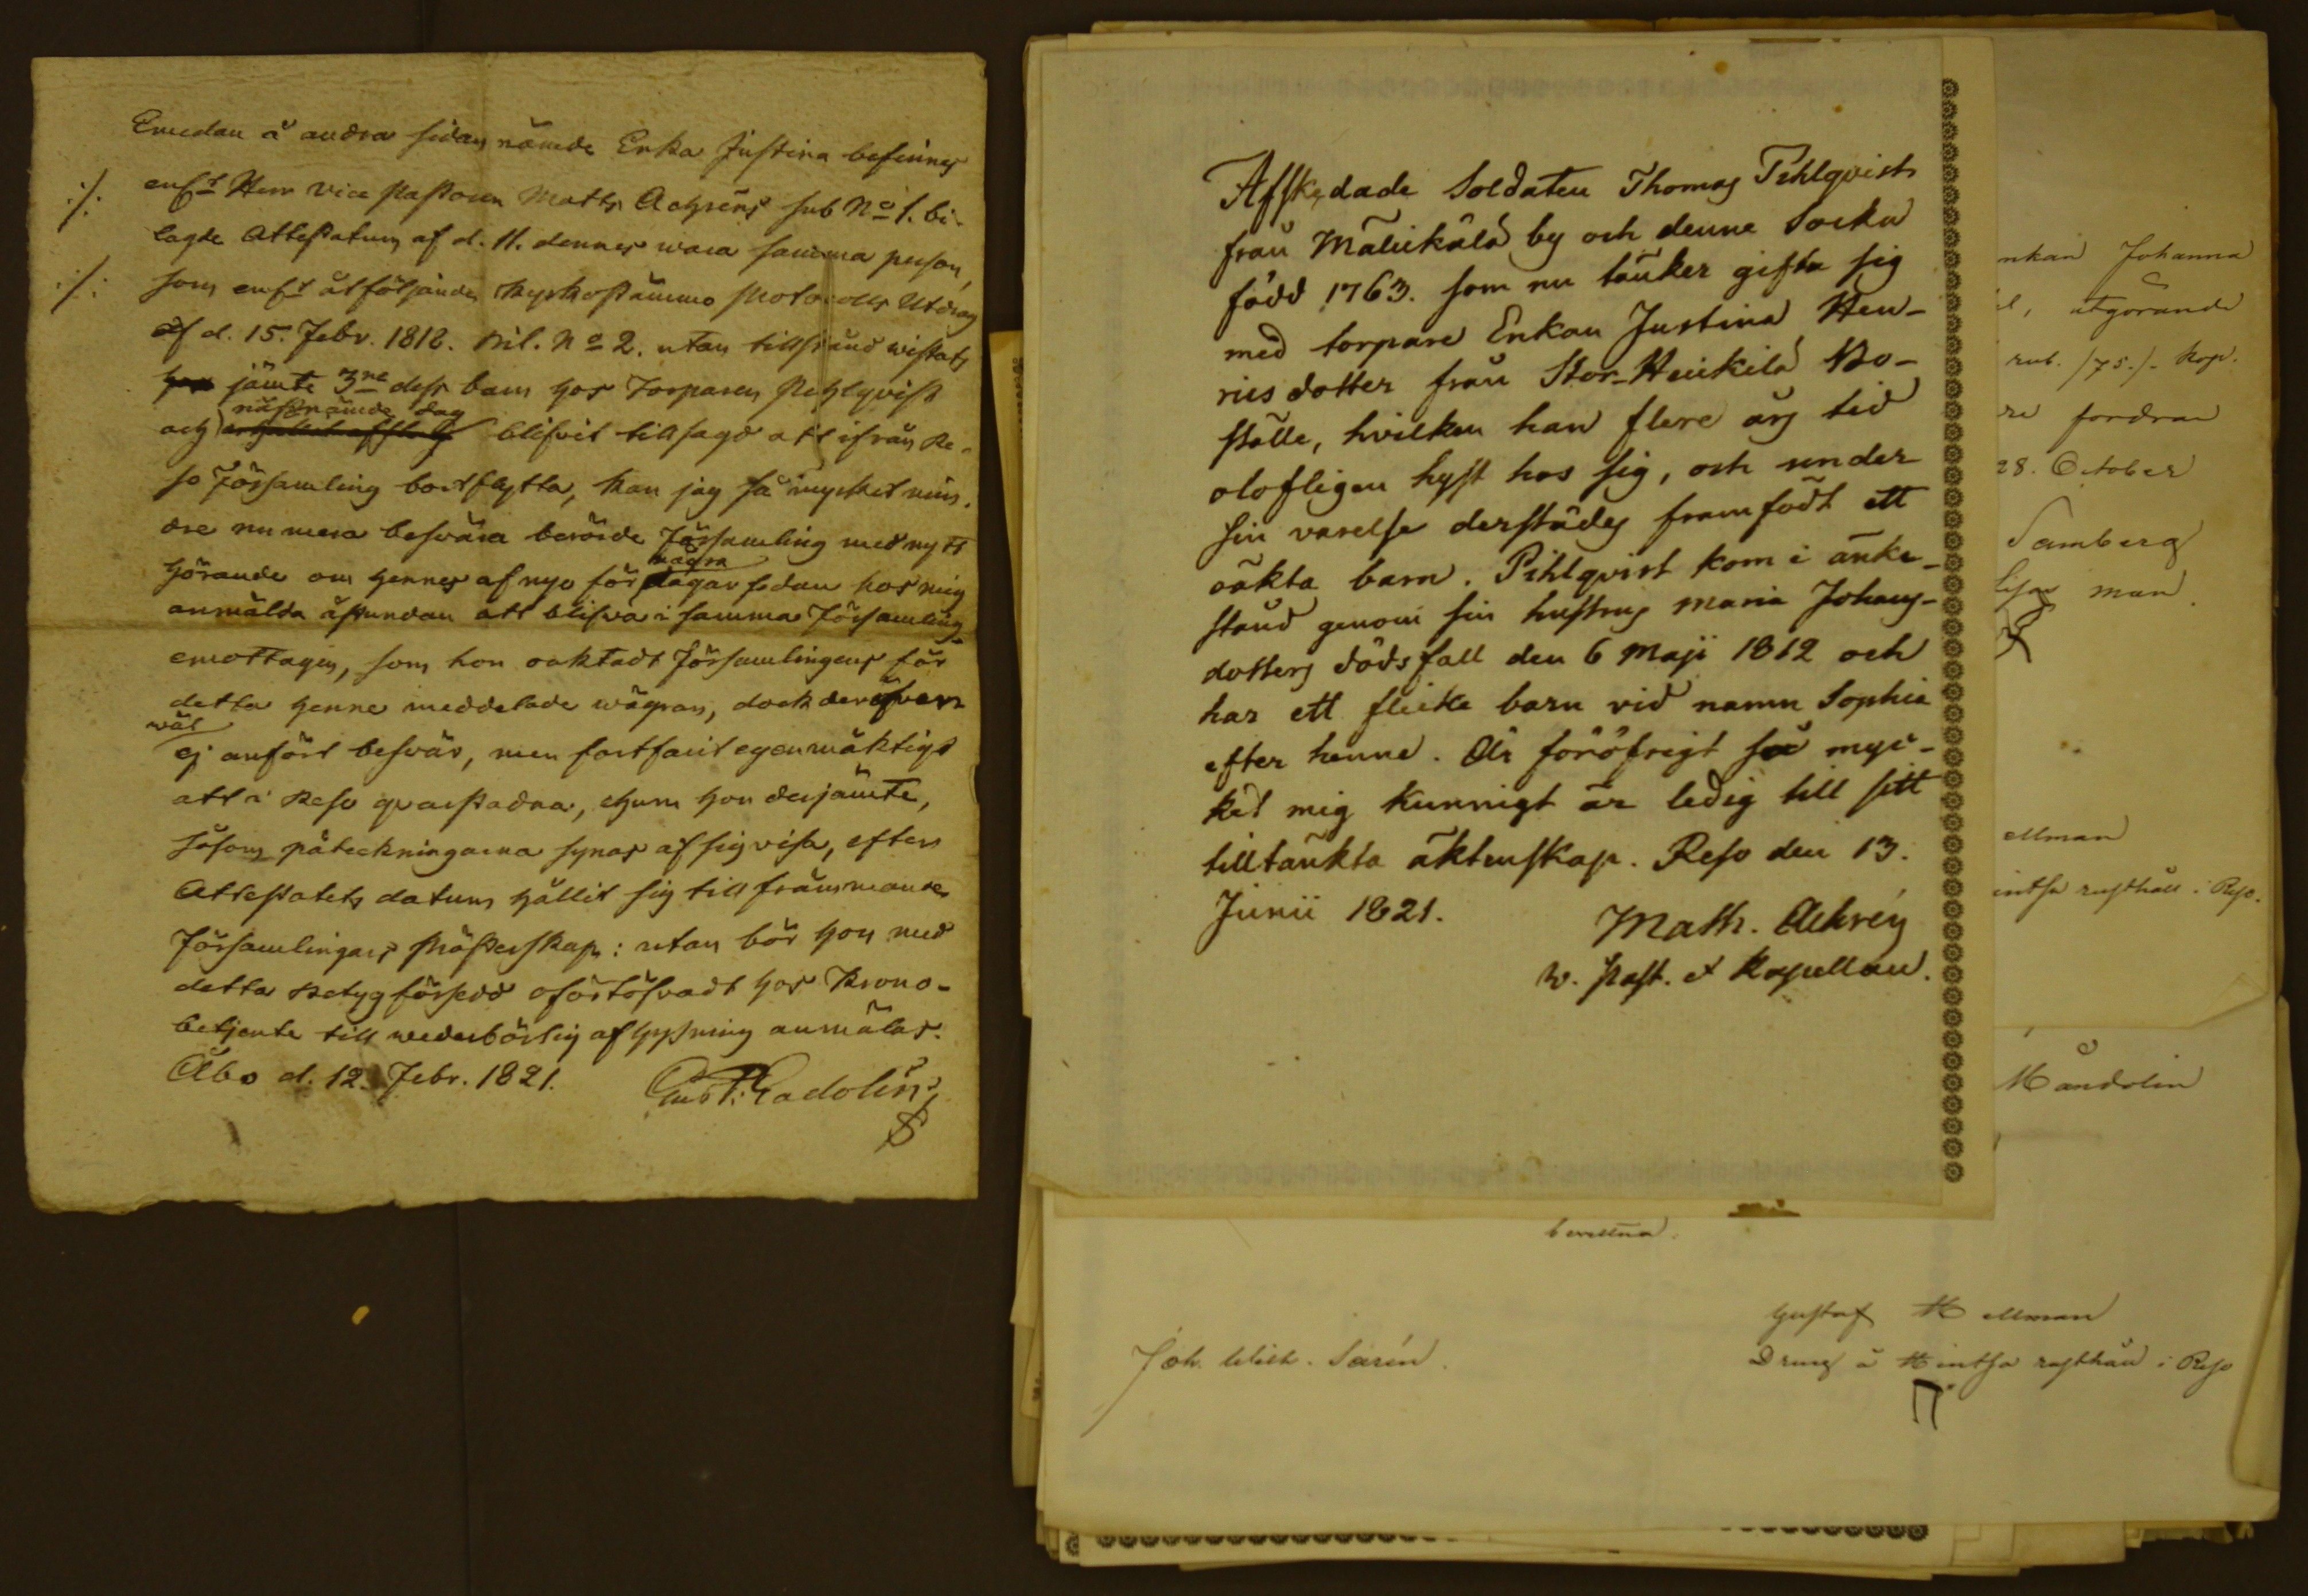 Emedan å andra sidan nämde Enka Justina befinnes
:/: enl:t Herr Vice Pastoren Matts Achréns sub No 1. bi-
lagde Attestatum af d. 11. dennes wara samma person,
:/: som enl:t åtföljande Kyrkostämmo Protocolls Utdrag
af d. 15. Febr. 1818. Bil. No 2. utan tillstånd wistats
jämte 3ne dess barn hos Torparen Pehlqvist
och näst nämde dag blifvit tillsagd att ifrån Re-
so Församling bortflytta, kan jag så mycket min-
dre numera besvära berörde Församling med nytt
hörande om hennes af nyo för några dagar sedan hos mig
anmälda åstundan att blifwa i samma Församling
emottagen, som hon oaktadt Församlingens för
detta henne meddelade wägran, dock deröfwer
wäl ej anfört besvär, men fortfarit egenmäktigt
att i Reso qvarstadna, ehuru hon derjämte,
såsom påteckningarna synas af sig visa, efter
Attestatets datum hållit sig till främmande
Församlingars Prästerskap: utan bör hon med
detta Betyg försedd ofördröfvadt hos Krono-
betjente till wederbörlig aflysning anmälas.
Åbo d. 12. Febr. 1821. Gust: Gadolin
Afskedade Soldaten Thomas Pihlqvist
från Mälikälä by och denne Socka
född 1763. som nu tänker gifta sig
med torpare Enkan Justina Hen-
ricsdotter från Stor-Heikilä Bo-
ställe, hvilken han flere års tid
olofligen hyst hos sig, och under
sin varelse derstädes framfödt ett
oäkta barn. Pihlqvist kom i änke-
stånd genom sin hustrus Maria Johans-
dotters dödsfall den 6 Maji 1812 och
har ett flicke barn vid namn Sophia
efter henne. Är föröfrigt så myc-
ket mig kunnigt är ledig till sitt
tilltänkta äktenskap. Reso den 13.
Junii 1821. Math. Achrén
v. Past. et Kapellan.
nkan Johanna
utgörande
rub. /75./- kop.
re fordran
28. October
Samberg
man
ellman
intsa rusthåll i Reso.
Måndolin
Joh. Wilh. Sarén.
Gustaf Hellman
Dreng å Hintsa rusthåll i Reso